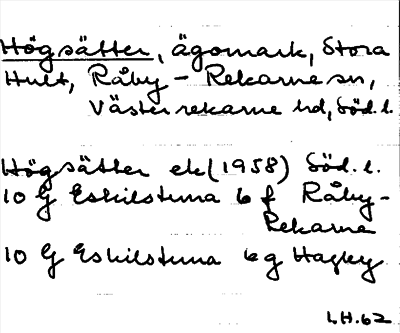 Högsätter, ägomark, Stora
Hult, Råby-Rekarne sn,
Västerrekarne hd, Söd. l.
Högsätter ek (1958) Söd. l.
10 G Eskilstuna 6 f Råby-
Rekarne
10 G Eskilstuna 6 g Hagby
I.H.62